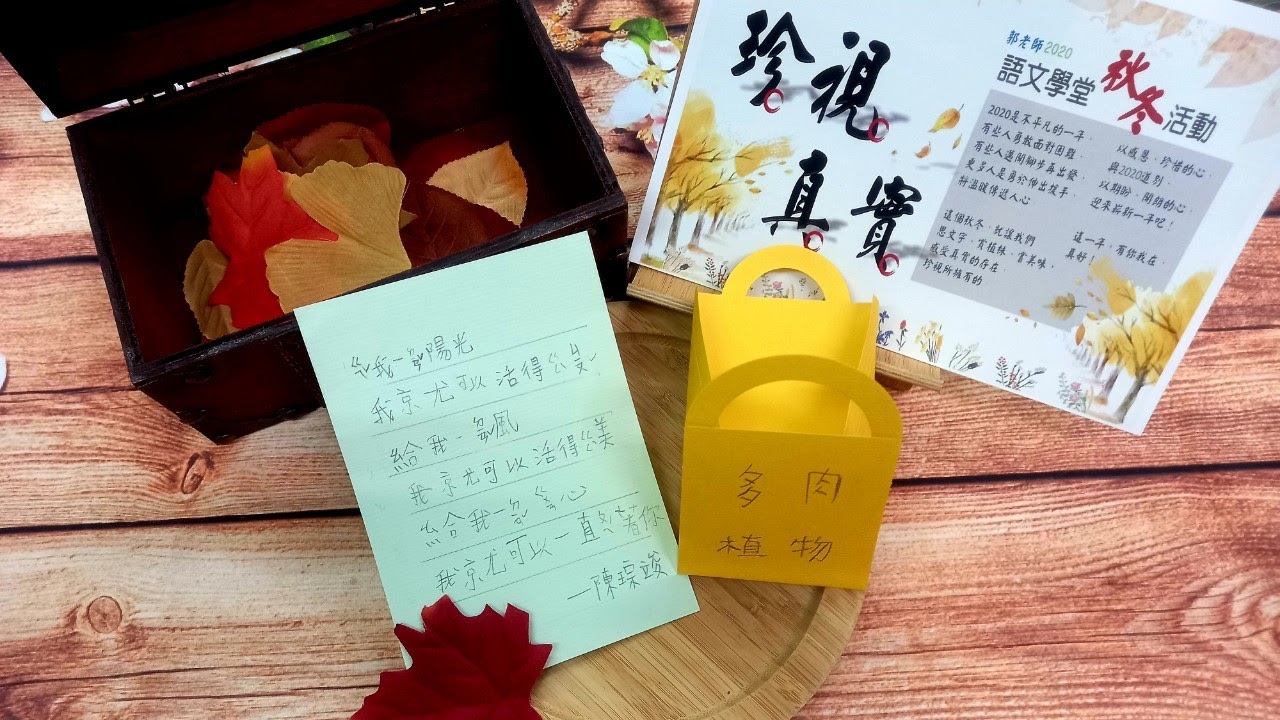 珍視
真實
郭老師2020
語文學堂 秋冬活動
2020是不平凡的一年，
有些人勇敢面對困難，
有些人邁開腳步再出發，
更多人是勇於伸出援手，
將溫暖傳送人心
這個秋冬，就讓我們
思文字、賞植株、嘗美味，
感受真實的存在，
珍視所擁有的
以感恩、珍惜的心，
與2020道別，
以期盼、開朗的心，
迎來嶄新一年吧！
這一年，有你我在，
真好！
我一 陽光
我就可以活得 美
給我一 風
我就可以活得 美
給我一 心
我就可以一直 著你
—陳琮竣
多肉
植物